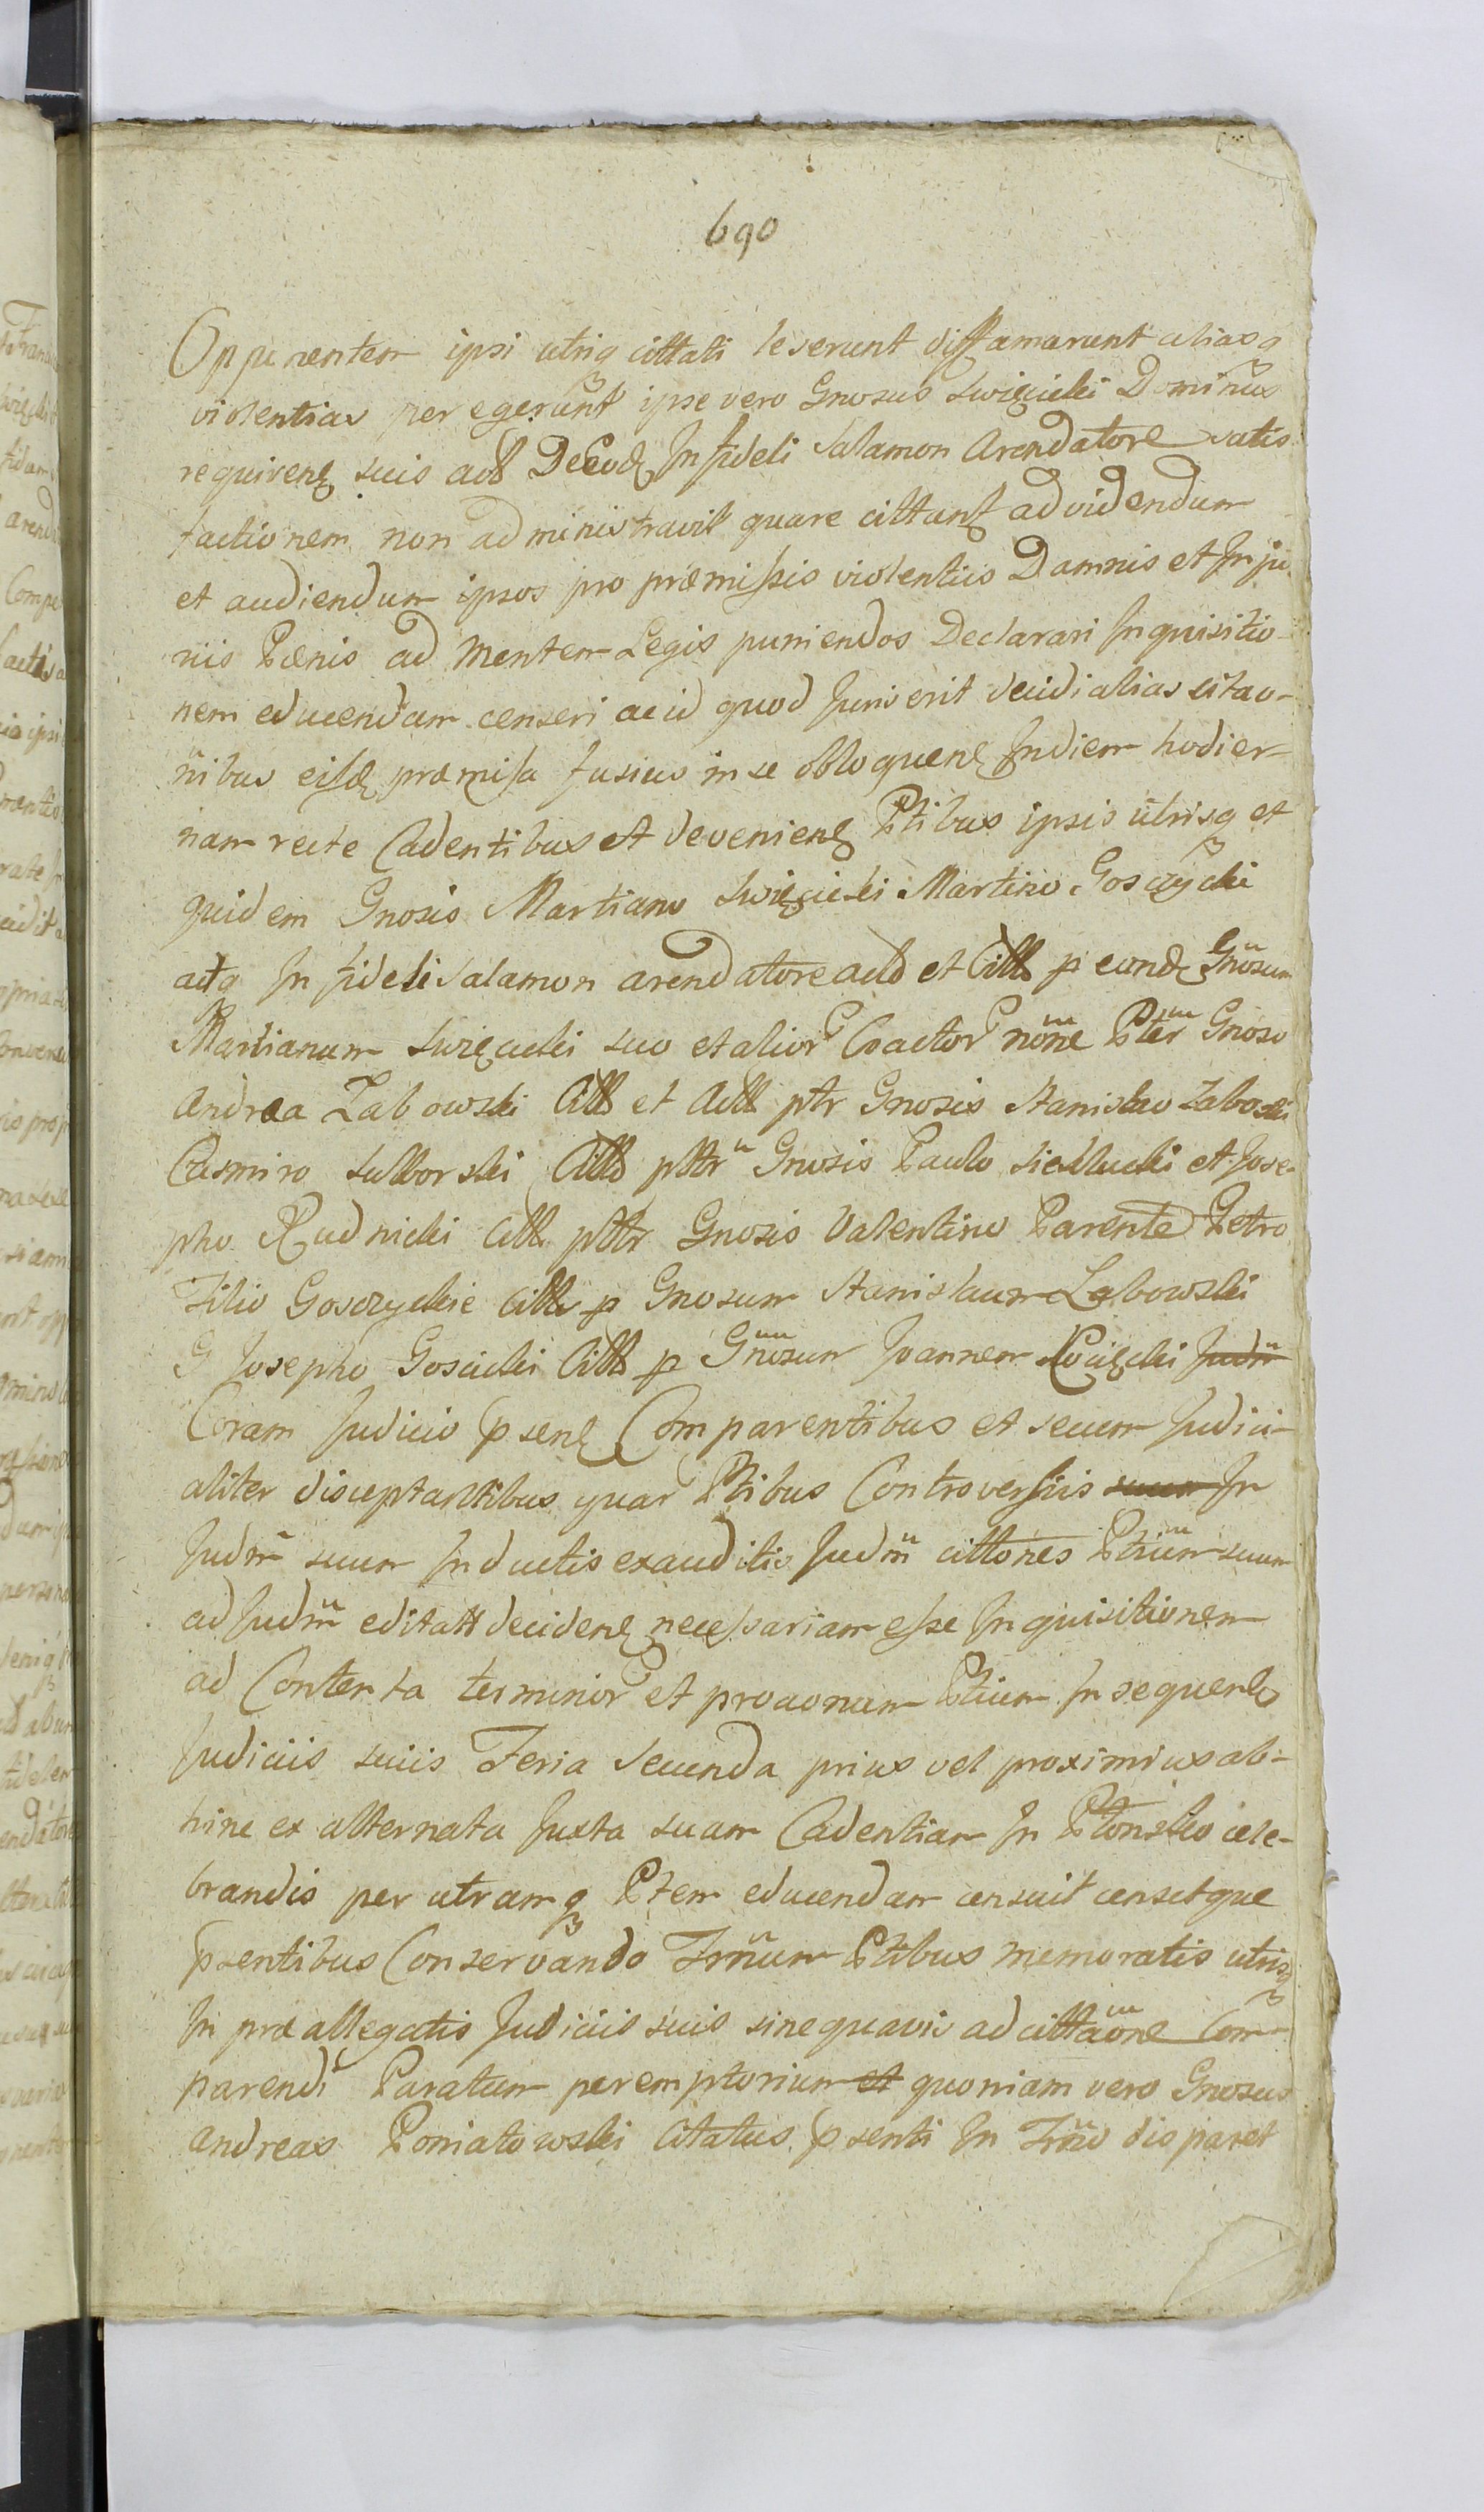 690
Opponentem ipsi utriq cittati leserunt diffamarunt aliasq
violentias peregerunt ipse vero Gnosus Swięcicki Dominus
requirenę suis actt De Eodę Infideli Salamon Arendatore satis
factionem non administravit quare cittant ad videndum
et audiendum ipsos pro præmissis violentiis Damnis et Inju
riis Pænis ad mentem Legis puniendos Declarari Inquisitio-
nem educendam censeri ac id quod Juris erit decidi alias citao-
nibus eisdę præmissa fusius in se obloquenę Indiem hodier-
nam recte Cadentibus et devenienę Ptibus ipsis utrisq et
quidem Gnosis Martiano Swięcicki Martino Gosczycki
atq Infideli Salamon arendatore actt et Citt p eundę Gnosum
Martianum Swięcicki suo et alior Coactor nõne Pter Gnoso
Andrea Zabowski Citt et Actt ptr Gnosis Stanislao Zaboski
Casmiro Sulborski Citt pttr Gnosis Paulo Siedlucki et Jose-
pho Rudnicki Citt pttr Gnosis Valentino Parente Petro
Filio Gosczyckie Citt p Gnosum Stanislaum Zabowski
G Josepho Goscicki Citt p Gnosum Joannem Kocięcki Judm
Coram Judicio psenę Comparentibus et secum Judici-
aliter disceptantibus quar Ptibus Controversiis suum In
Judm suum Inductis exauditis Judm cittones Ptium suum
ad Judm editatt decidenę necessariam esse Inquisitionem
ad Contenta terminor et proaonum Ptium In sequen
Judiciis suis Feria Secunda prius vel proximius ab-
hinc ex alternata Juxta suam Cadentiam In Płonsko cele-
brandis per utramq Ptem educendam censuit censetque
psentibus Conservando Trnum Ptibus memoratis utrisq
In præallegatis Judiciis suis sinequavis adcittaone Com-
parendi Paratum peremptorium et quoniam vero Gnosus
Andreas Poniatowski Citatus psenti In Trno disparet